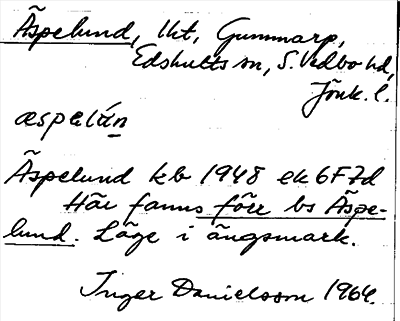 Äspelund, lht, Gummarp,
Edshults sn, S. Vedbo hd,
Jönk. l.
æspəlún
Äspelund kb 1948 ek 6F7d
Här fanns förr bs Äspe-
lund. Läge i ängsmark.
Inger Danielsson 1964.